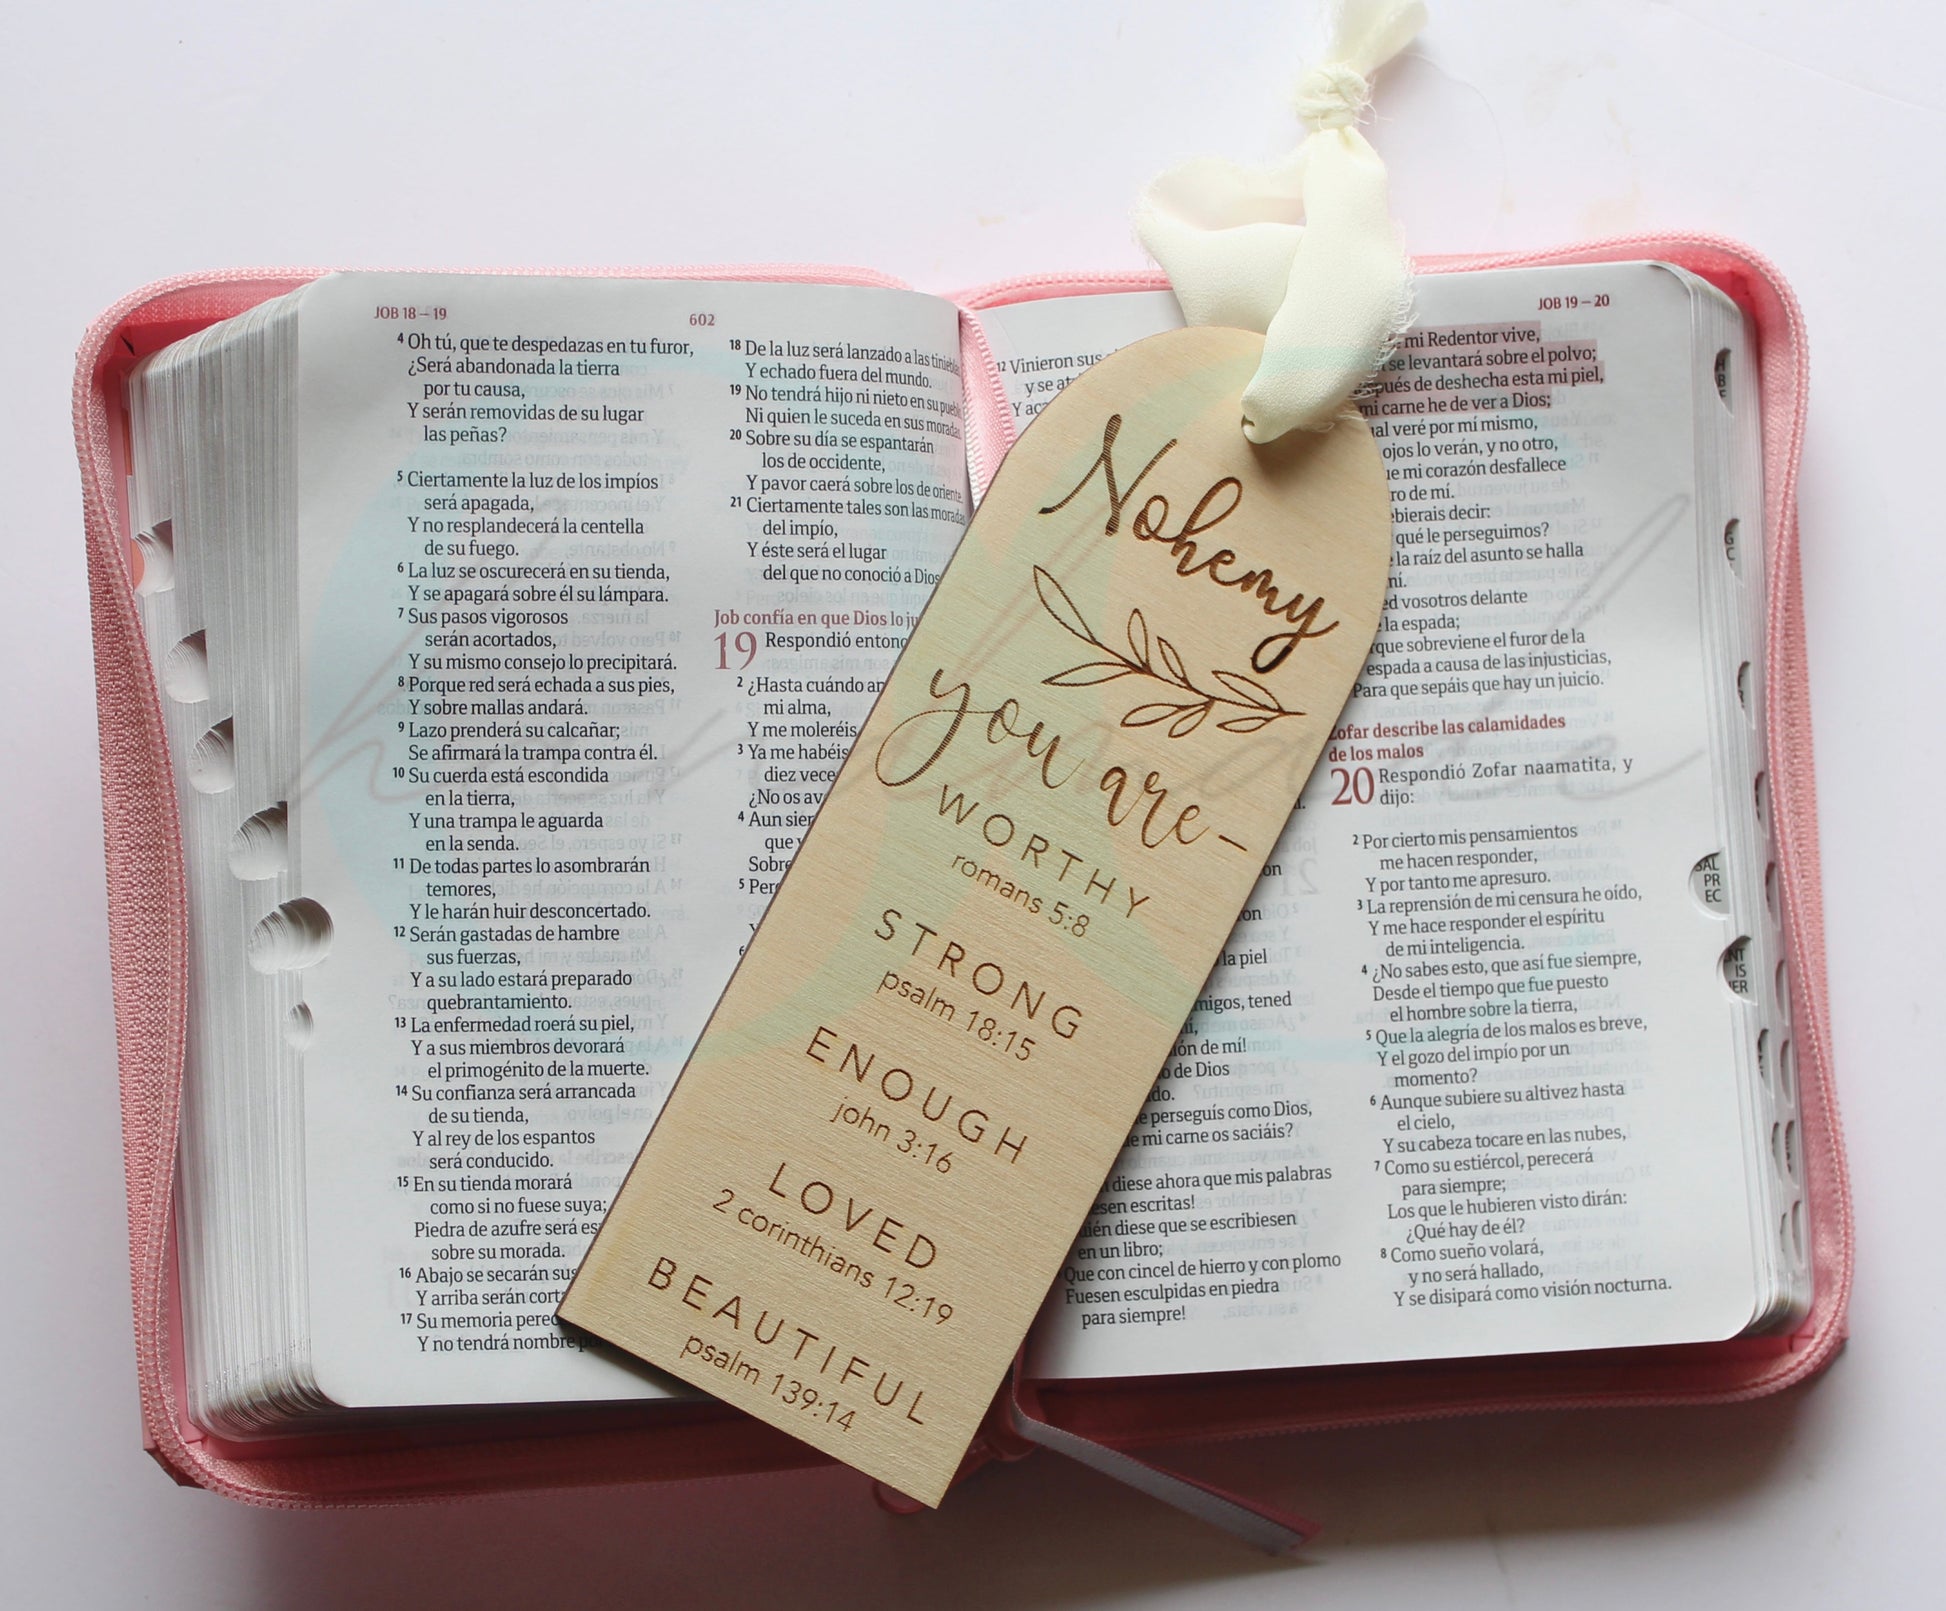 JOB 18 – 19
602
4 Oh tú, que te despedazas en tu furor,
¿Será abandonada la tierra
por tu causa,
Y serán removidas de su lugar
las peñas?
5 Ciertamente la luz de los impíos
será apagada,
Y no resplandecerá la centella
de su fuego.
6 La luz se oscurecerá en su tienda,
Y se apagará sobre él su lámpara.
7 Sus pasos vigorosos
serán acortados,
Y su mismo consejo lo precipitará.
8 Porque red será echada a sus pies,
Y sobre mallas andará.
9 Lazo prenderá su calcañar;
Se afirmará la trampa contra él.
10 Su cuerda está escondida
en la tierra,
Y una trampa le aguarda
en la senda.
11 De todas partes lo asombrarán
temores,
Y le harán huir desconcertado.
12 Serán gastadas de hambre
sus fuerzas,
Y a su lado estará preparado
quebrantamiento.
13 La enfermedad roerá su piel,
Y a sus miembros devorará
el primogénito de la muerte.
14 Su confianza será arrancada
de su tienda,
Y al rey de los espantos
será conducido.
15 En su tienda morará
como si no fuese suya;
Piedra de azufre será
sobre su morada.
16 Abajo se secarán sus
Y arriba serán
17 Su memoria
Y no tendrá nombre
18 De la luz será lanzado a las
Y echado fuera del mundo.
19 No tendrá hijo ni nieto en su
Ni quien le suceda en sus moradas.
20 Sobre su día se espantarán
los de occidente,
Y pavor caerá sobre los de oriente.
21 Ciertamente tales son las moradas
del impío,
Y éste será el lugar
del que no conoció a Dios
Job confía en que Dios lo
19 Respondió
2 ¿Hasta cuándo
mi alma,
Y me moleréis
3 Ya me habéis
diez
¿No os
4 Aun
que
Sobre
5
Nohemy
you are-
WORTHY
romans 5:8
STRONG
psalm 18:15
ENOUGH
john 3:16
LOVED
2 corinthians 12:19
BEAUTIFUL
psalm 139:14
JOB 19 – 20
12 Vinieron sus
y se
Y
la piel
migos, tened
de mí!
o de Dios
perseguís como Dios,
mi carne os saciáis?
diese ahora que mis palabras
escritas!
diese que se escribiesen
en un libro;
Que con cincel de hierro y con plomo
Fuesen esculpidas en piedra
para siempre!
mi Redentor vive,
se levantará sobre el polvo;
de deshecha esta mi piel,
mi carne he de ver a Dios;
veré por mí mismo,
ojos lo verán, y no otro,
mi corazón desfallece
de mí.
decir:
qué le perseguimos?
la raíz del asunto se halla
vosotros delante
la espada;
sobreviene el furor de la
espada a causa de las injusticias,
Para que sepáis que hay un juicio.
Zofar describe las calamidades
de los malos
20 Respondió Zofar naamatita, y
dijo:
2 Por cierto mis pensamientos
me hacen responder,
Y por tanto me apresuro.
3 La reprensión de mi censura he oído,
Y me hace responder el espíritu
de mi inteligencia.
4 ¿No sabes esto, que así fue siempre,
Desde el tiempo que fue puesto
el hombre sobre la tierra,
5 Que la alegría de los malos es breve,
Y el gozo del impío por un
momento?
6 Aunque subiere su altivez hasta
el cielo,
Y su cabeza tocare en las nubes,
7 Como su estiércol, perecerá
para siempre;
Los que le hubieren visto dirán:
¿Qué hay de él?
8 Como sueño volará,
y no será hallado,
Y se disipará como visión nocturna.
SAL
PR
EC